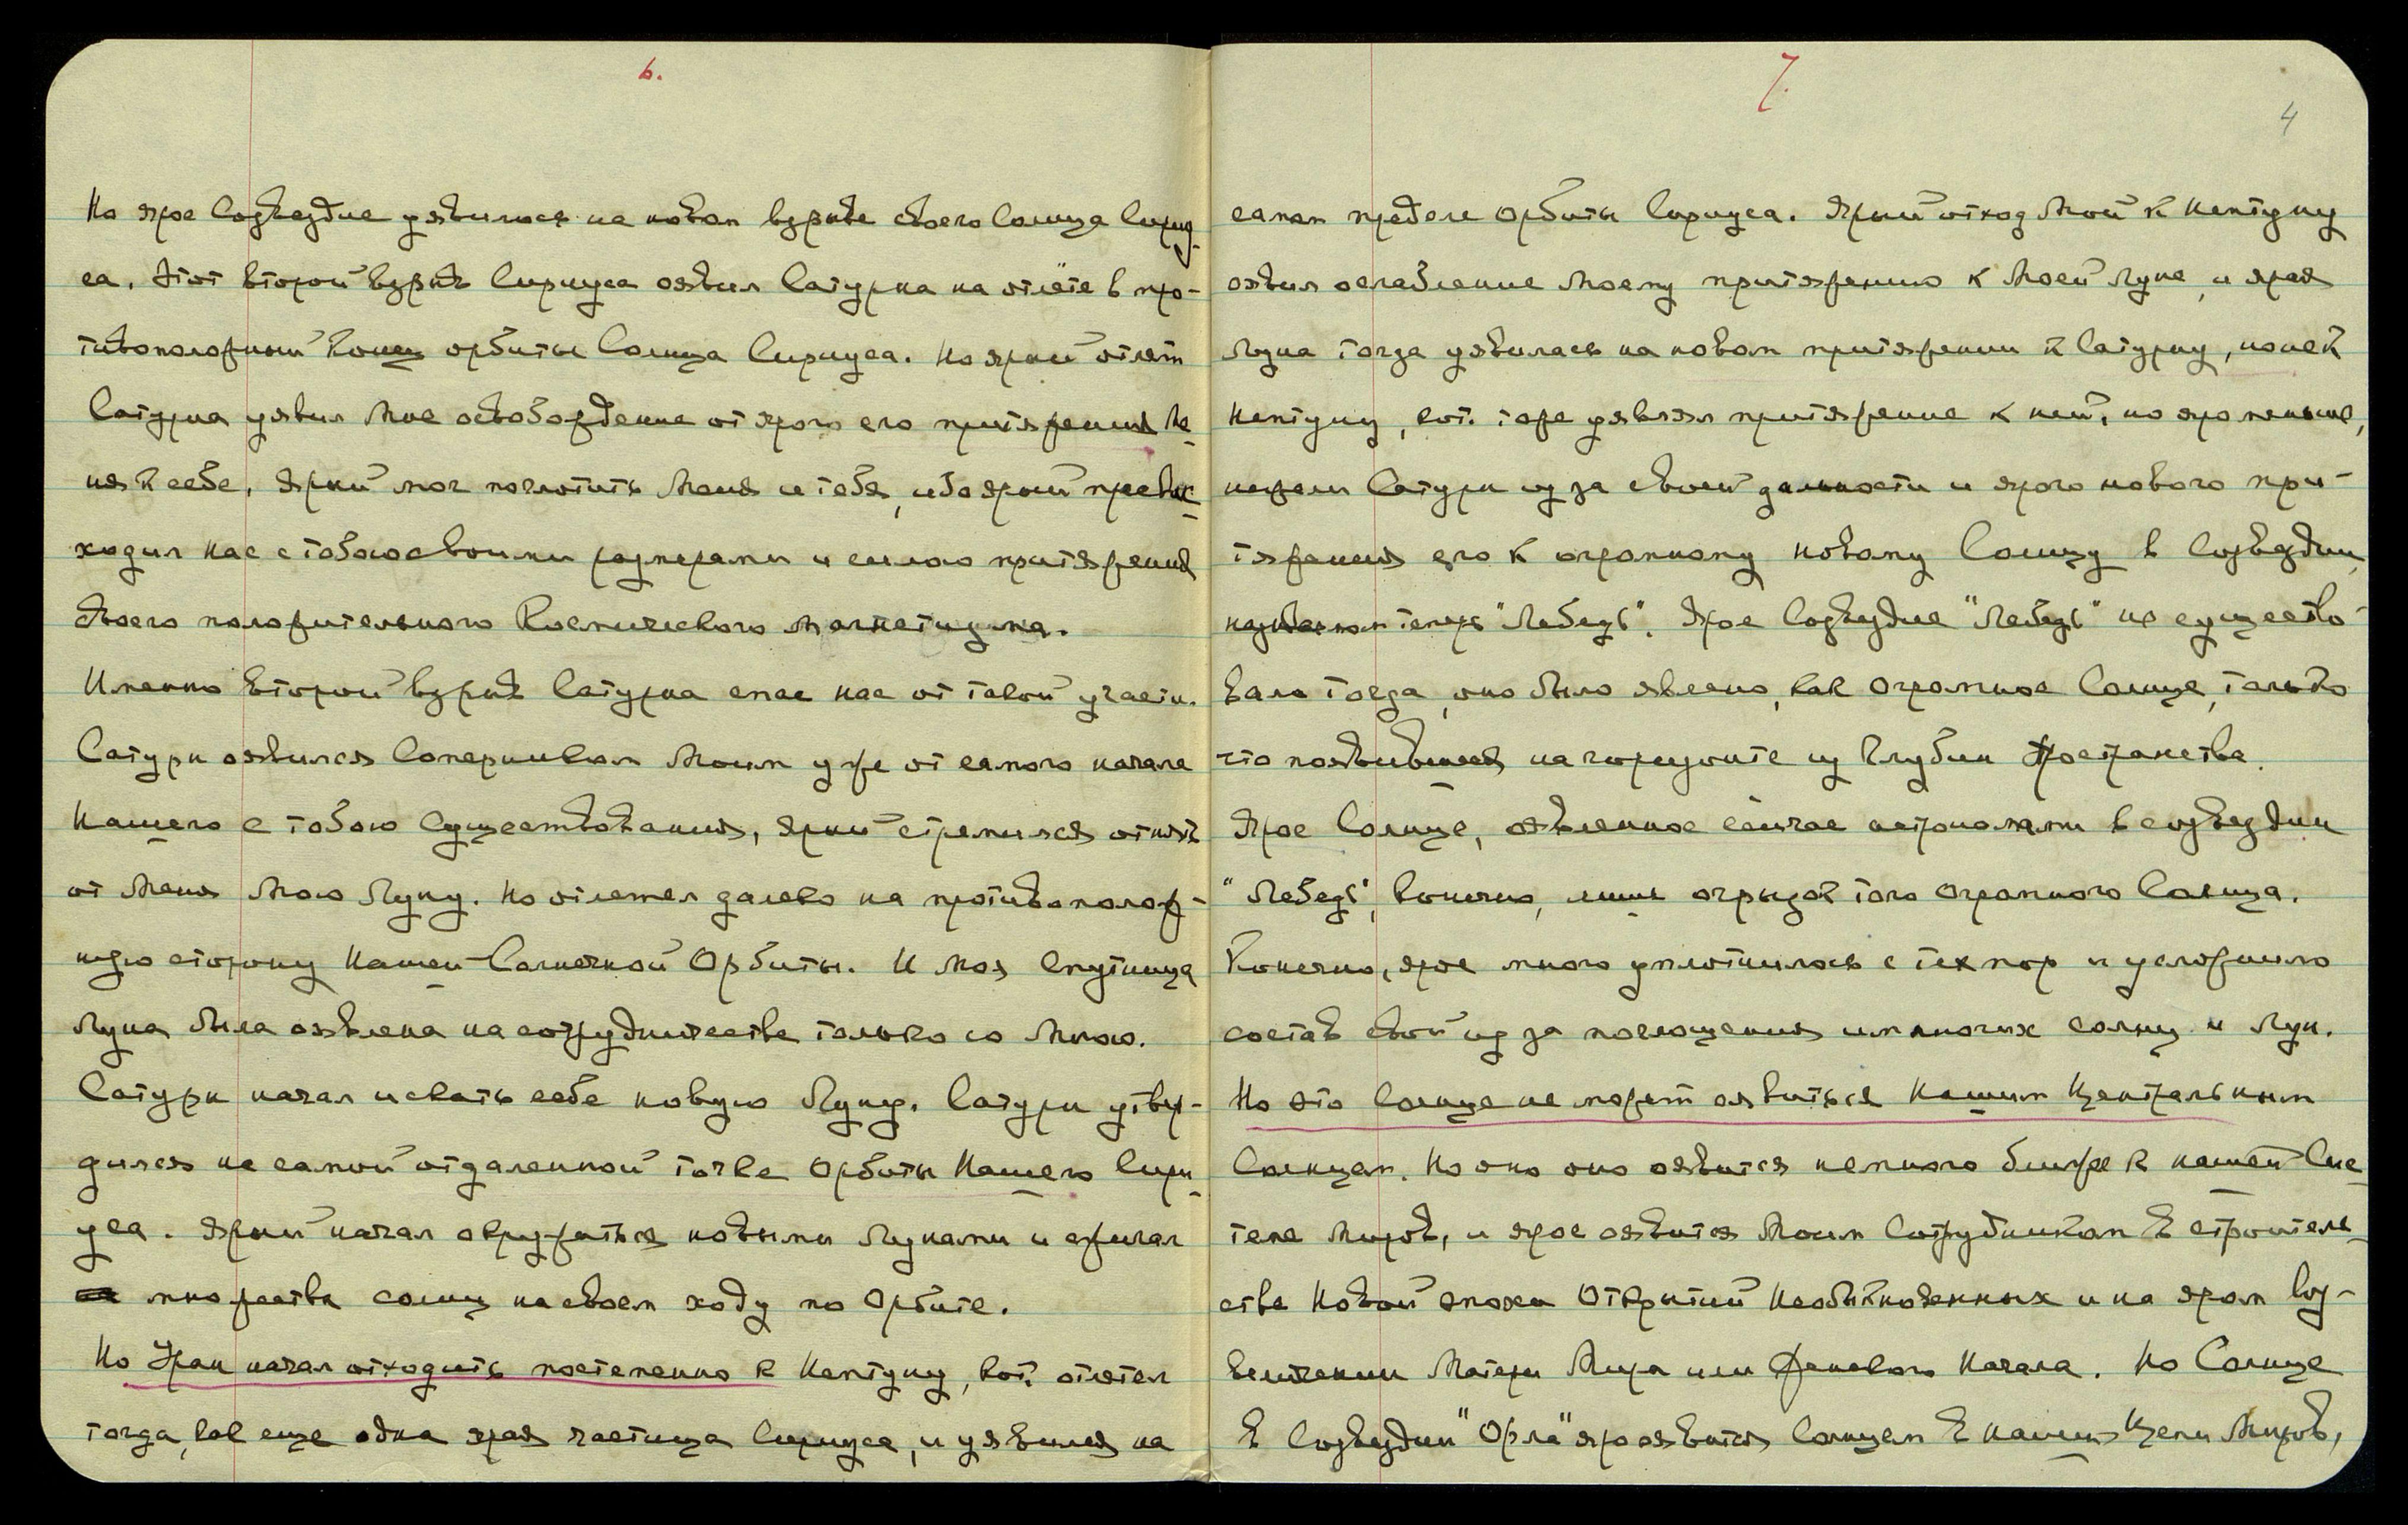 6.
Но ярое Созвездие уявилось на новом взрыве своего Солнца Сириу-
са. Этот второй взрыв Сириуса оявил Сатурна на отлёте в про-
тивоположный конец орбиты Солнца Сириуса. Но ярый отлёт
Сатурна уявил Мне освобождение от ярого его притяжения Ме-
ня к себе. Ярый мог поглотить Меня и тебя, ибо ярый превос-
ходил нас с тобою своими размерами и силою притяжения
своего положительного Космического Магнетизма.
Именно второй взрыв Сатурна спас нас от такой участи.
Сатурн оявился Соперником Моим уже от самого начала
Нашего с тобою Существования, ярый стремился отнять
от Меня Мою Луну. Но отлетел далеко на противополож-
ную сторону Нашей Солнечной Орбиты. И моя Спутница
Луна была оявлена на сотрудничестве только со Мною.
Сатурн начал искать себе новую Луну. Сатурн утвер-
дился на самой отдаленной точке Орбиты Нашего Сири-
уса. Ярый начал окружаться новыми Лунами и сжигал
множества солнц на своем ходу по Орбите.
Но Уран начал отходить постепенно к Нептуну, кот. отлетел
тогда, как еще одна ярая частица Сириуса, и уявился на
7.
4
самом пределе орбиты Сириуса. Ярый отход Мой к Нептуну
оявил ослабление Моему притяжению к Моей Луне, и ярая
Луна тогда уявилась на новом притяжении к Сатурну, но не к
Нептуну, кот. тоже уявлял притяжение к ней, но яро меньше,
нежели Сатурн из за своей дальности и ярого нового при-
тяжения его к огромному новому Солнцу в Созвездии,
названном теперь "Лебедь". Ярое Созвездие "Лебедь" не существо-
вало тогда, оно было явлено, как Огромное Солнце, только
что появившееся на горизонте из Глубин Пространства.
Ярое Солнце, оявленное сейчас астрономами в созвездии
"Лебедь", конечно, лишь огрызок того Огромного Солнца.
Конечно, ярое много уплотнилось с тех пор и усложнило
состав свой из за поглощения им многих солнц и Лун.
Но это Солнце не может оявиться Нашим Центральным
Солнцем. Но оно оно оявится немного ближе к нашей Сис-
теме Миров, и ярое оявится Моим Сотрудником в строитель-
стве Новой эпохи Открытий Необыкновенных и на яром Воз-
величении Матери Мира или Женского Начала. Но Солнце
в Созвездии "Орла" яро оявится Солнцем в нашей Цепи Миров,